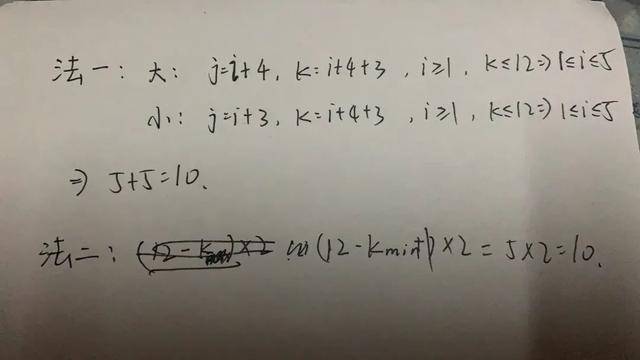 法一: 大: j=i+4, k=i+4+3, i≥1, k≤12⇒1≤i≤5
小: j=i+3, k=i+4+3, i≥1, k≤12⇒1≤i≤5
⇒ 5+5=10.
法二: (12-kmin+1)×2=5×2=10.